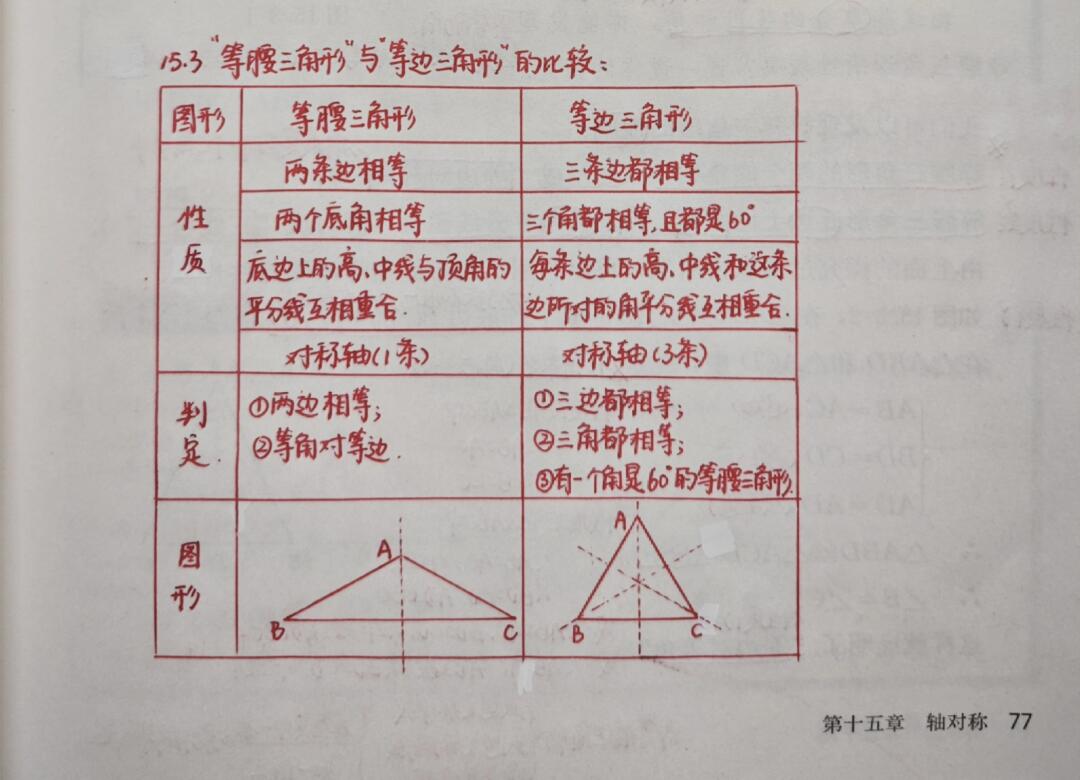 15.3 "等腰三角形"与"等边三角形"的比较:
图形 等腰三角形 等边三角形
性质
两条边相等 三条边都相等
两个底角相等 三个角都相等,且都是60°
底边上的高、中线与顶角的 每条边上的高、中线和这条
平分线互相重合. 边所对的角平分线互相重合.
对称轴(1条) 对称轴(3条)
判定.
①两边相等; ①三边都相等;
②等角对等边. ②三角都相等;
③有一个角是60°的等腰三角形.
图形
A A
B C B C
第十五章 轴对称 77